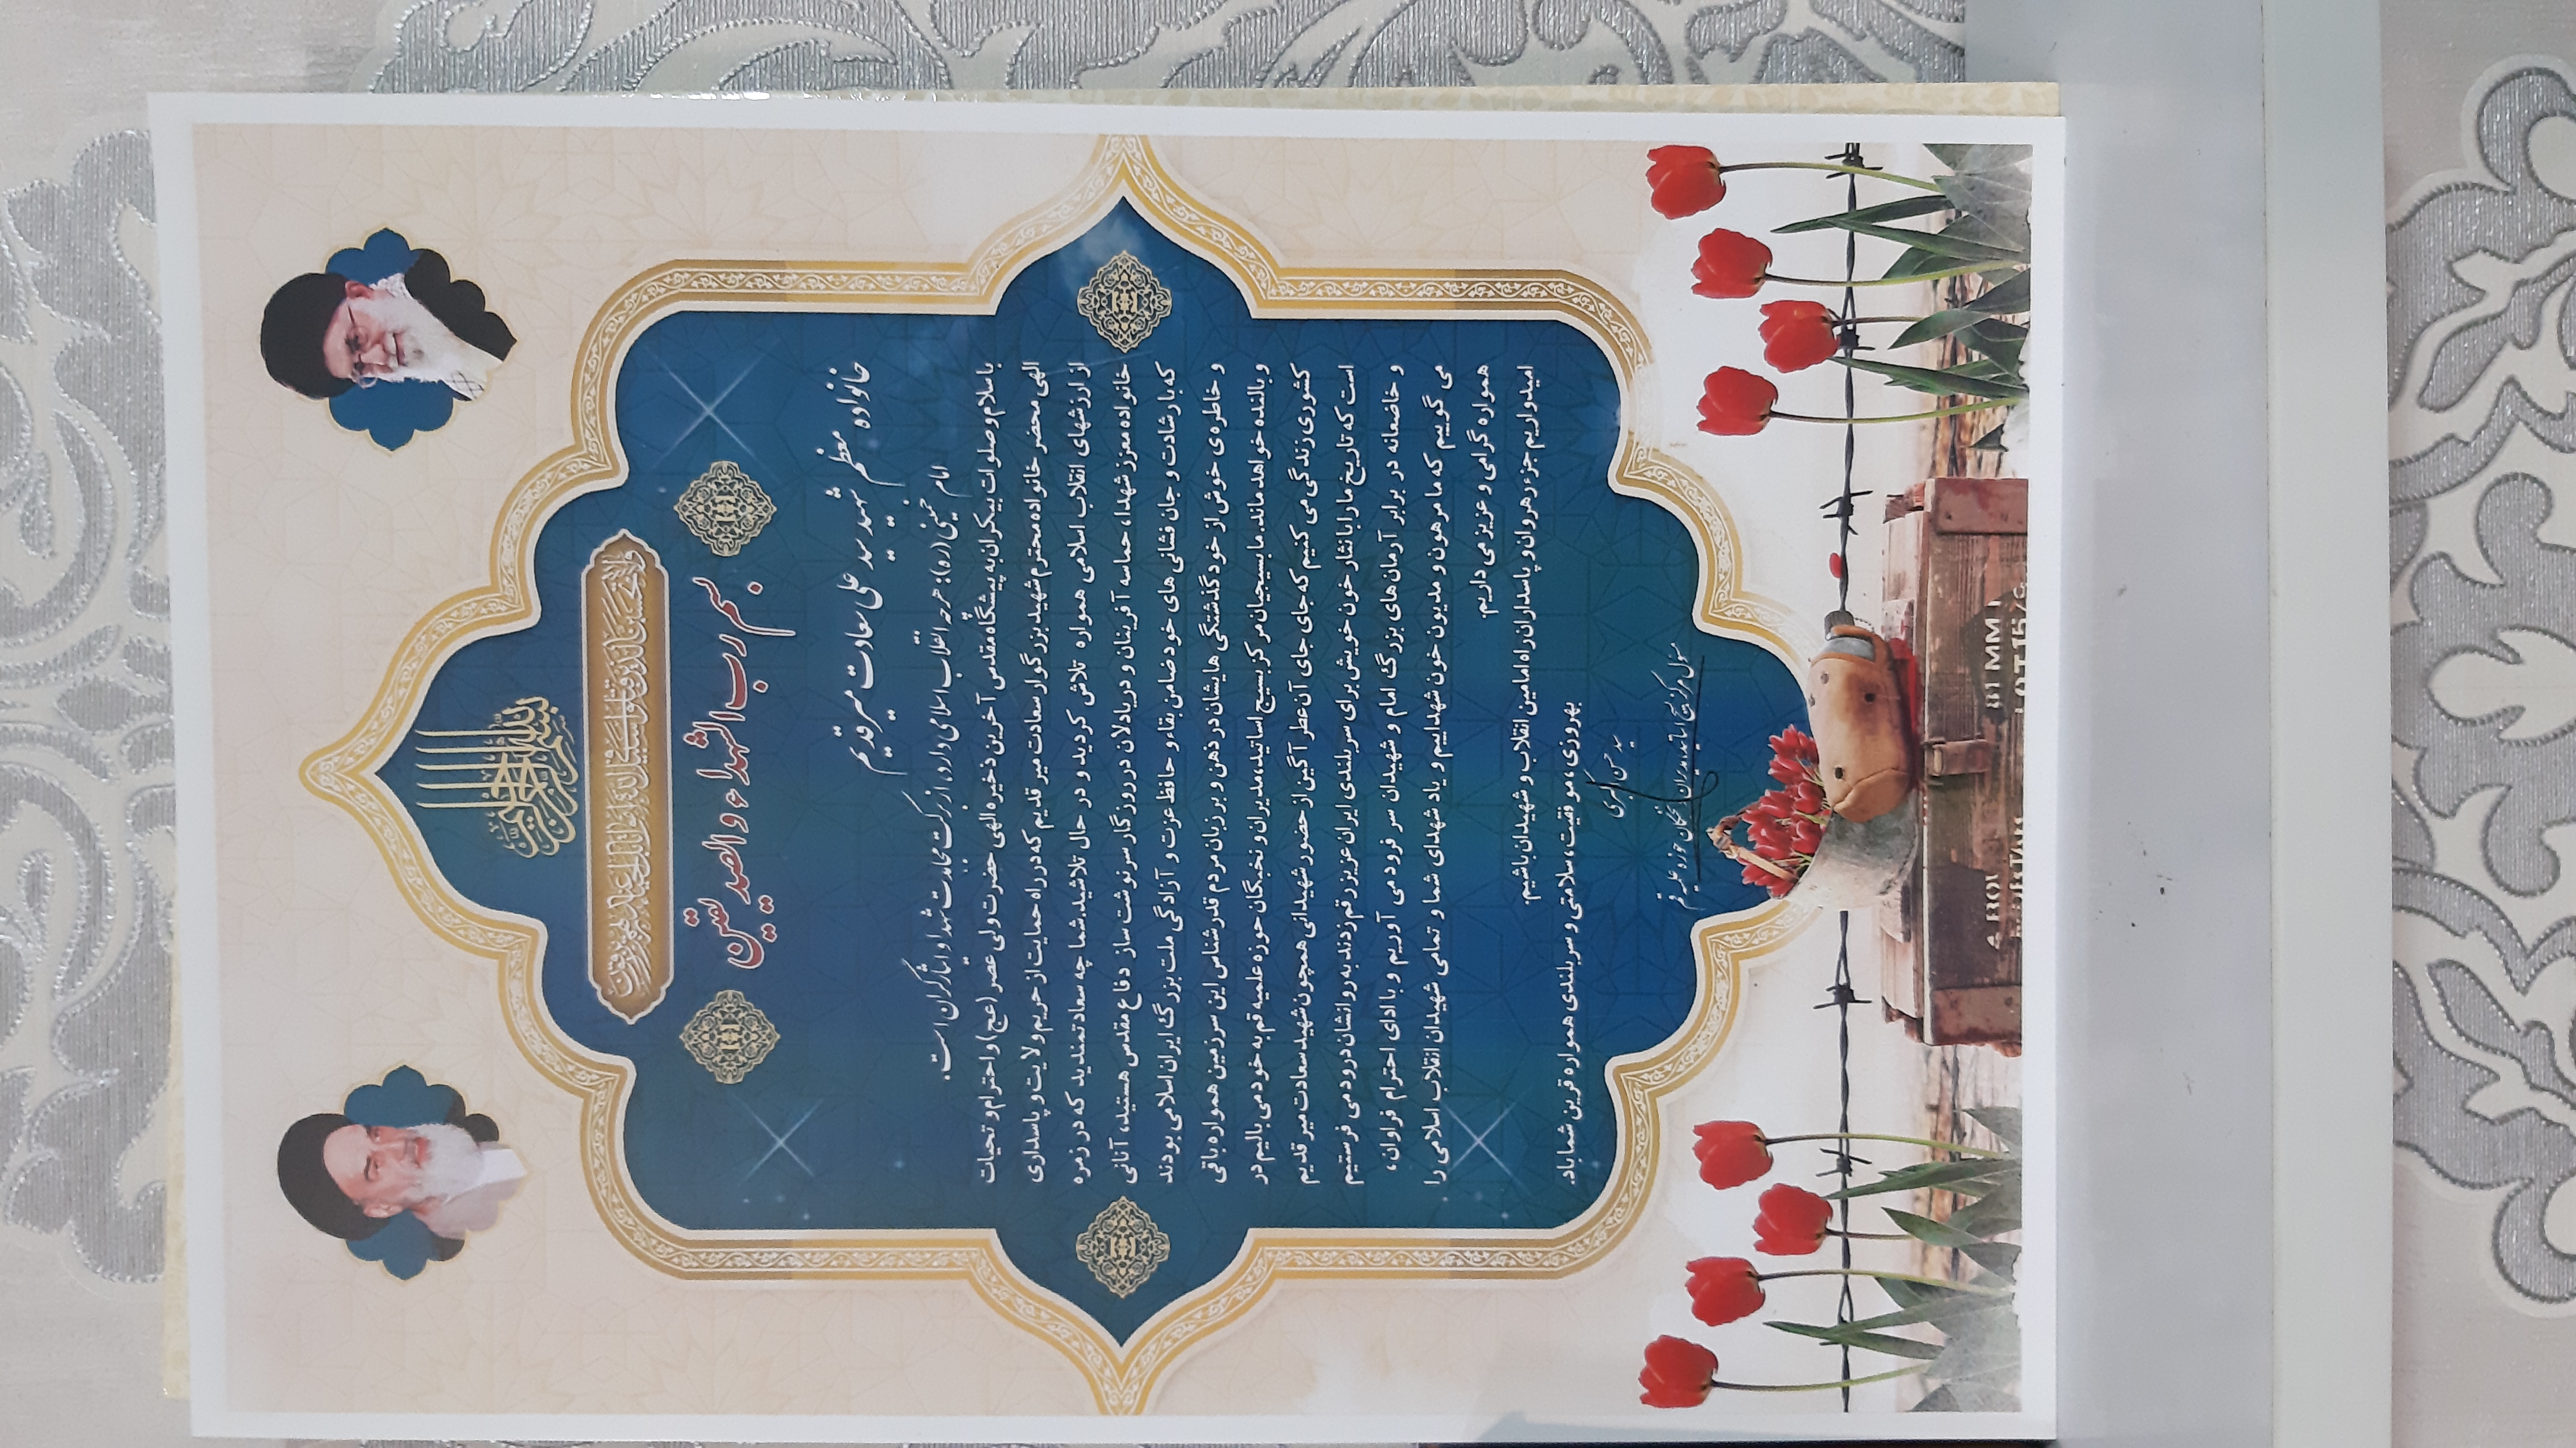 بسم الله الرحمن الرحیم
ولا تحسبن الذین قتلوا فی سبیل الله امواتا بل احیاء عند ربهم یرزقون
بسم رب الشهداء والصدیقین
خانواده معظم شهید سید علی سعادت میرقدیم
امام خمینی (ره): هرچه انقلاب اسلامی دارد، از برکت مجاهدت شهدا و ایثارگران است.
با سلام و صلوات بیکران به پیشگاه مقدس آخرین ذخیره الهی حضرت ولی عصر (عج) و احترام و تحیات
الهی محضر خانواده محترم شهید بزرگوار سعادت میر قدیم که در راه حمایت از حریم ولایت و پاسداری
از ارزشهای انقلاب اسلامی همواره تلاش کردید و در حال تلاشید.شما چه سعادتمندید که در زمره
خانواده معزز شهدا، حماسه آفرینان و دریادلان در روزگار سرنوشت ساز دفاع مقدس هستید، آنانی
که با رشادت و جان فشانی های خود ضامن بقاء و حافظ عزت و آزادگی ملت بزرگ ایران اسلامی بودند
و خاطره ی خوش از خودگذشتگی هایشان در ذهن و بر زبان مردم قدرشناس این سرزمین همواره باقی
و بالنده خواهد ماند. ما بسیجیان مرکز بسیج اساتید،مدیران و نخبگان حوزه علمیه قم به خود می بالیم در
کشوری زندگی می کنیم که جای جای آن عطر آگین از حضور شهیدانی همچون شهید سعادت میر قدیم
است که تاریخ ما را با نثار خون خویش برای سربلندی ایران عزیز رقم زدند به روانشان درود می فرستیم
و خاضعانه در برابر آرمان های بزرگ امام و شهیدان سر فرود می آوریم و با ادای احترام فراوان،
می گوییم که ما مرهون و مدیون خون شهداییم و یاد شهدای شما و تمامی شهیدان انقلاب اسلامی را
همواره گرامی و عزیز می داریم.
امیدواریم جزء رهروان و پاسداران راه امامین انقلاب و شهیدان باشیم.
بهروزی ،موفقیت، سلامتی و سربلندی همواره قرین شما باد.
سید حسن اکبری
مسئول مرکز بسیج اساتید، مدیران و نخبگان حوزه علمیه قم
81 MM
LOT 15/